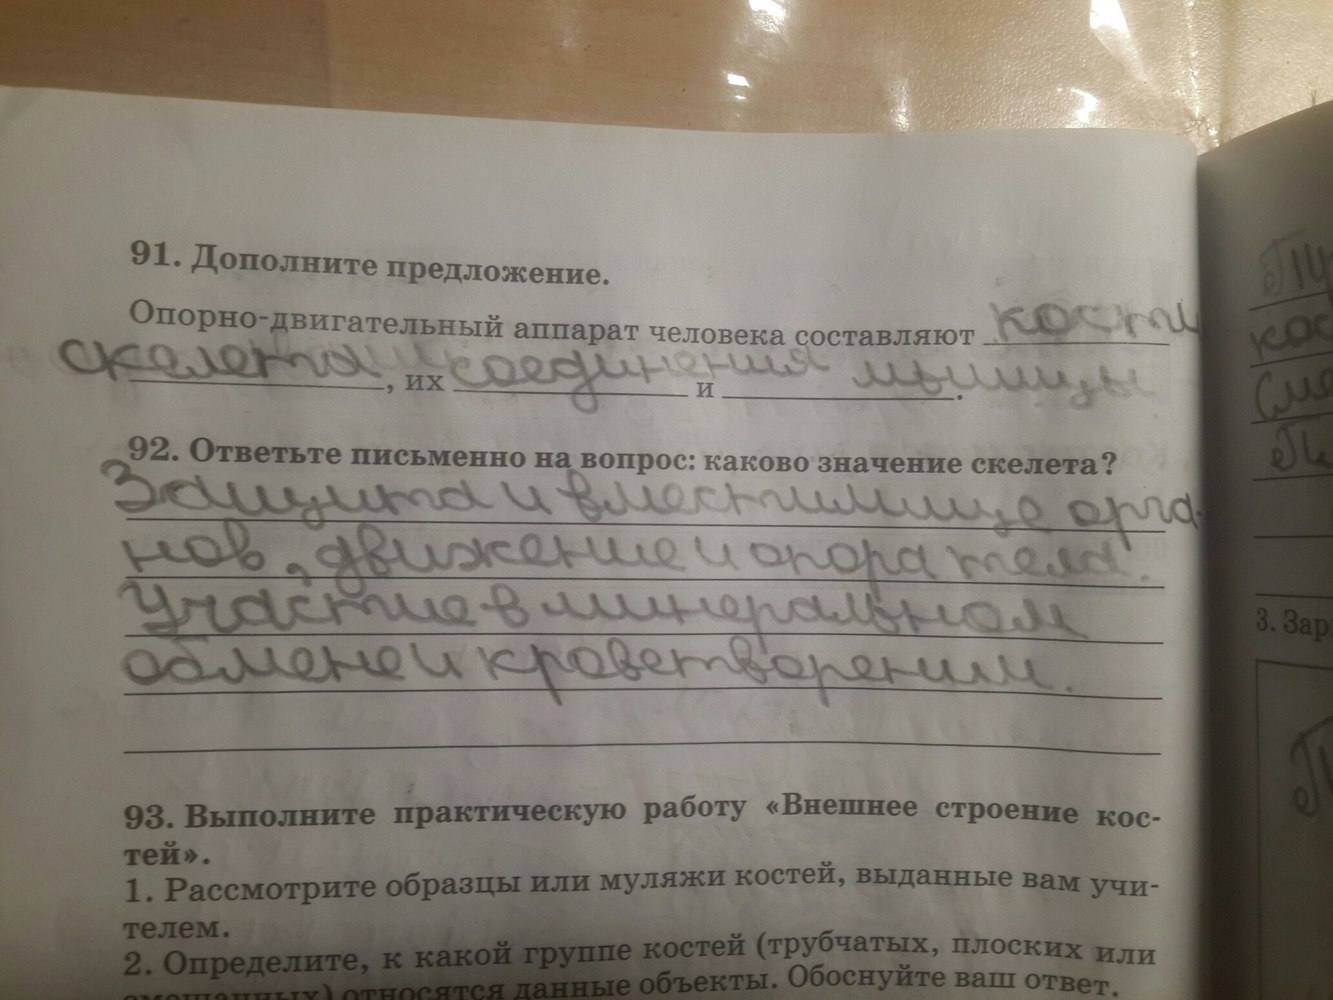 91. Дополните предложение.
Опорно-двигательный аппарат человека составляют кости
скелета и, их соединения и мышцы.
92. Ответьте письменно на вопрос: каково значение скелета?
Защита и вместилище орга-
нов, движение и опора тела.
Участие в минеральном
обмене и кроветворении.
93. Выполните практическую работу «Внешнее строение кос-
тей».
1. Рассмотрите образцы или муляжи костей, выданные вам учи-
телем.
2. Определите, к какой группе костей (трубчатых, плоских или
смешанных) относятся данные объекты. Обоснуйте ваш ответ.
кос
3. Зар